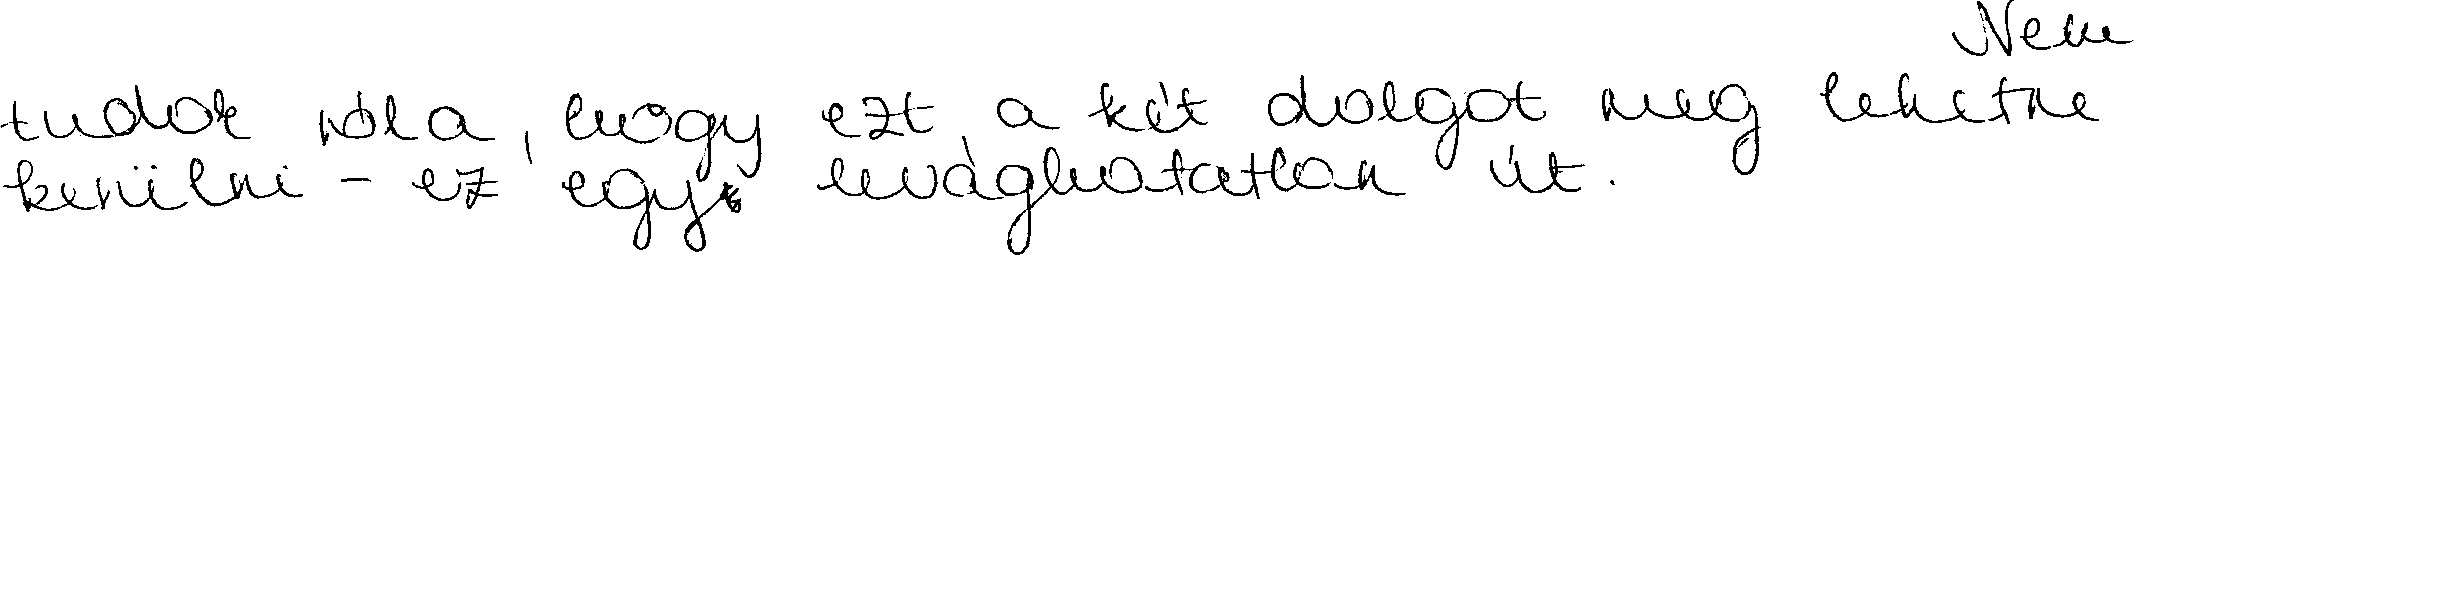 Nem
tudok róla, hogy ezt a két dolgot meg lehetne
kerülni - ez egy levághatatlan út.